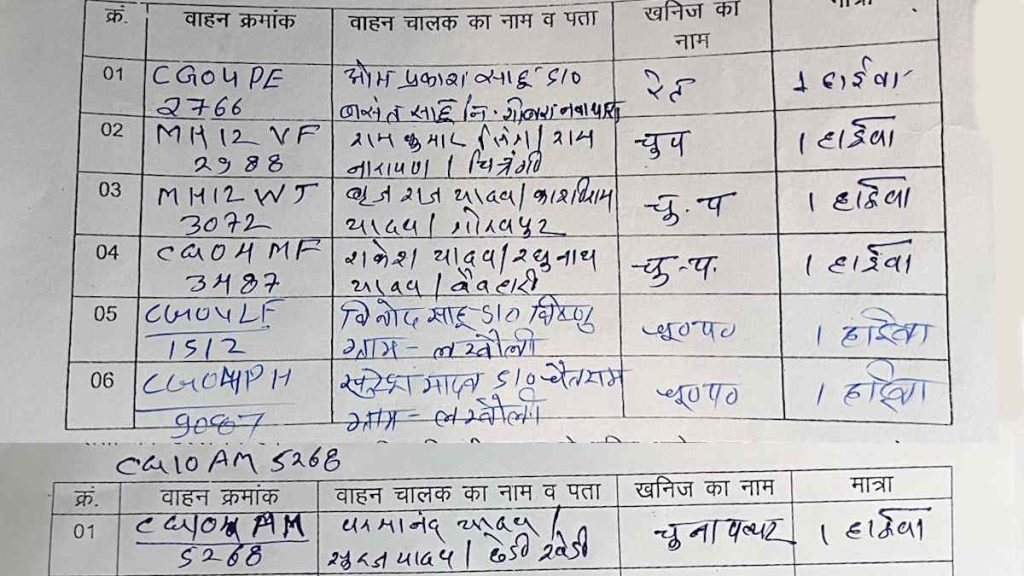 क्रं. वाहन क्रमांक वाहन चालक का नाम व पता खनिज का नाम मात्रा
01 CG04PE ओम प्रकाश साहू S/O रेत 1 हाईवा
2766 बसंत साहू / नि.
02 MH12 VF राम कुमार सिंग / राम चुप 1 हाईवा
2988 नारायण / चित्रंगी
03 MH12 WJ बृज राज यादव / काशीराम चु. प 1 हाईवा
3072 यादव / गोरखपुर
04 CG04 MF राकेश यादव / रघुनाथ चु.प. 1 हाईवा
3487 यादव /
05 CG04LF विनोद साहू S/O विष्णु चू०प० 1 हाईवा
1512 ग्राम - लखौली
06 CG04PH S/O चैतराम चू०प० 1 हाईवा
9087 ग्राम - लखौली
CG10 AM 5268
क्रं. वाहन क्रमांक वाहन चालक का नाम व पता खनिज का नाम मात्रा
01 CG04 AM परमानंद यादव / चुना पत्थर 1 हाईवा
5268 यादव /